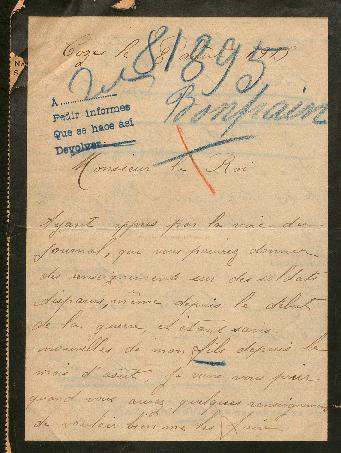 Cozes le 8 1915
81895
Bonpain
A
Pedir informes
Que se hace así
Devolver
Monsieur le Roi
Ayant appris par la voie du
journal, que vous pouviez donner
des renseignements sur des soldats
disparus, même depuis le debut
de la guerre, et étant sans
nouvelles de mon fils depuis le
mois d'août, Je viens vous prier
quand vous aurez quelques renseignements
de vouloir bien me les